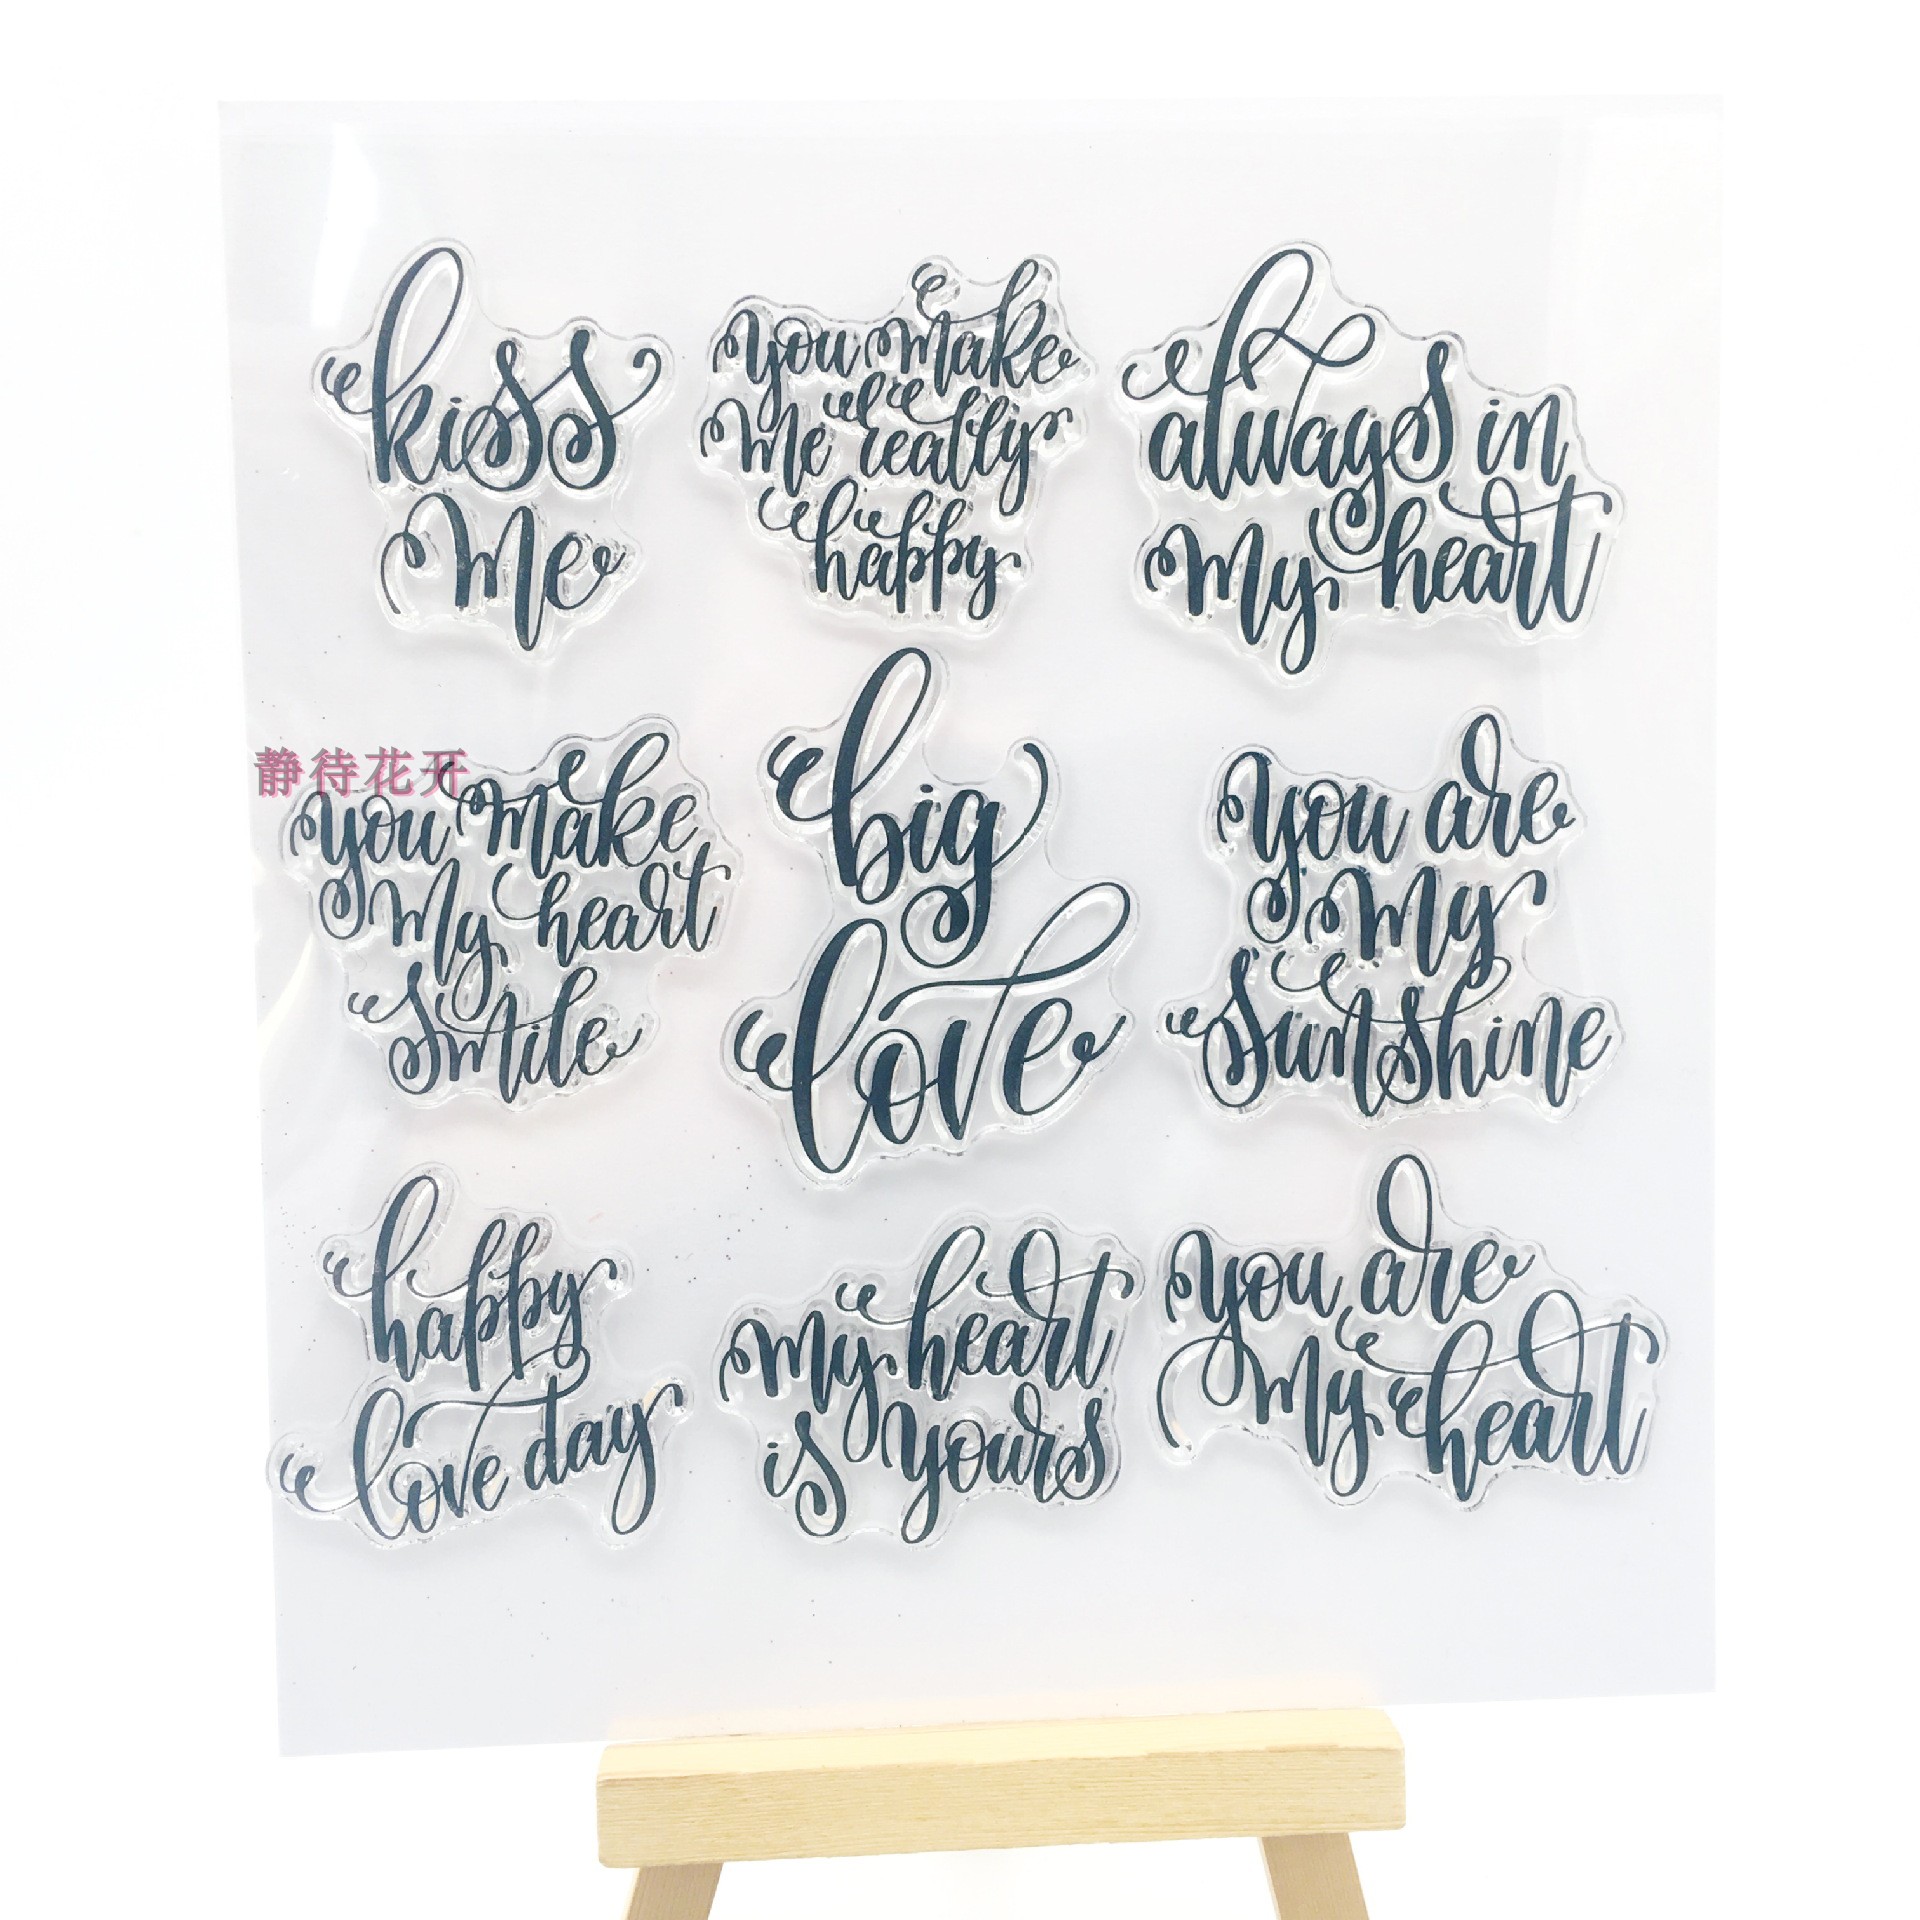 kiss
me
you make
me really
happy
always in
my heart
静待花开
you make
my heart
smile
big
love
you are
my
sunshine
happy
love day
my heart
is yours
you are
my heart